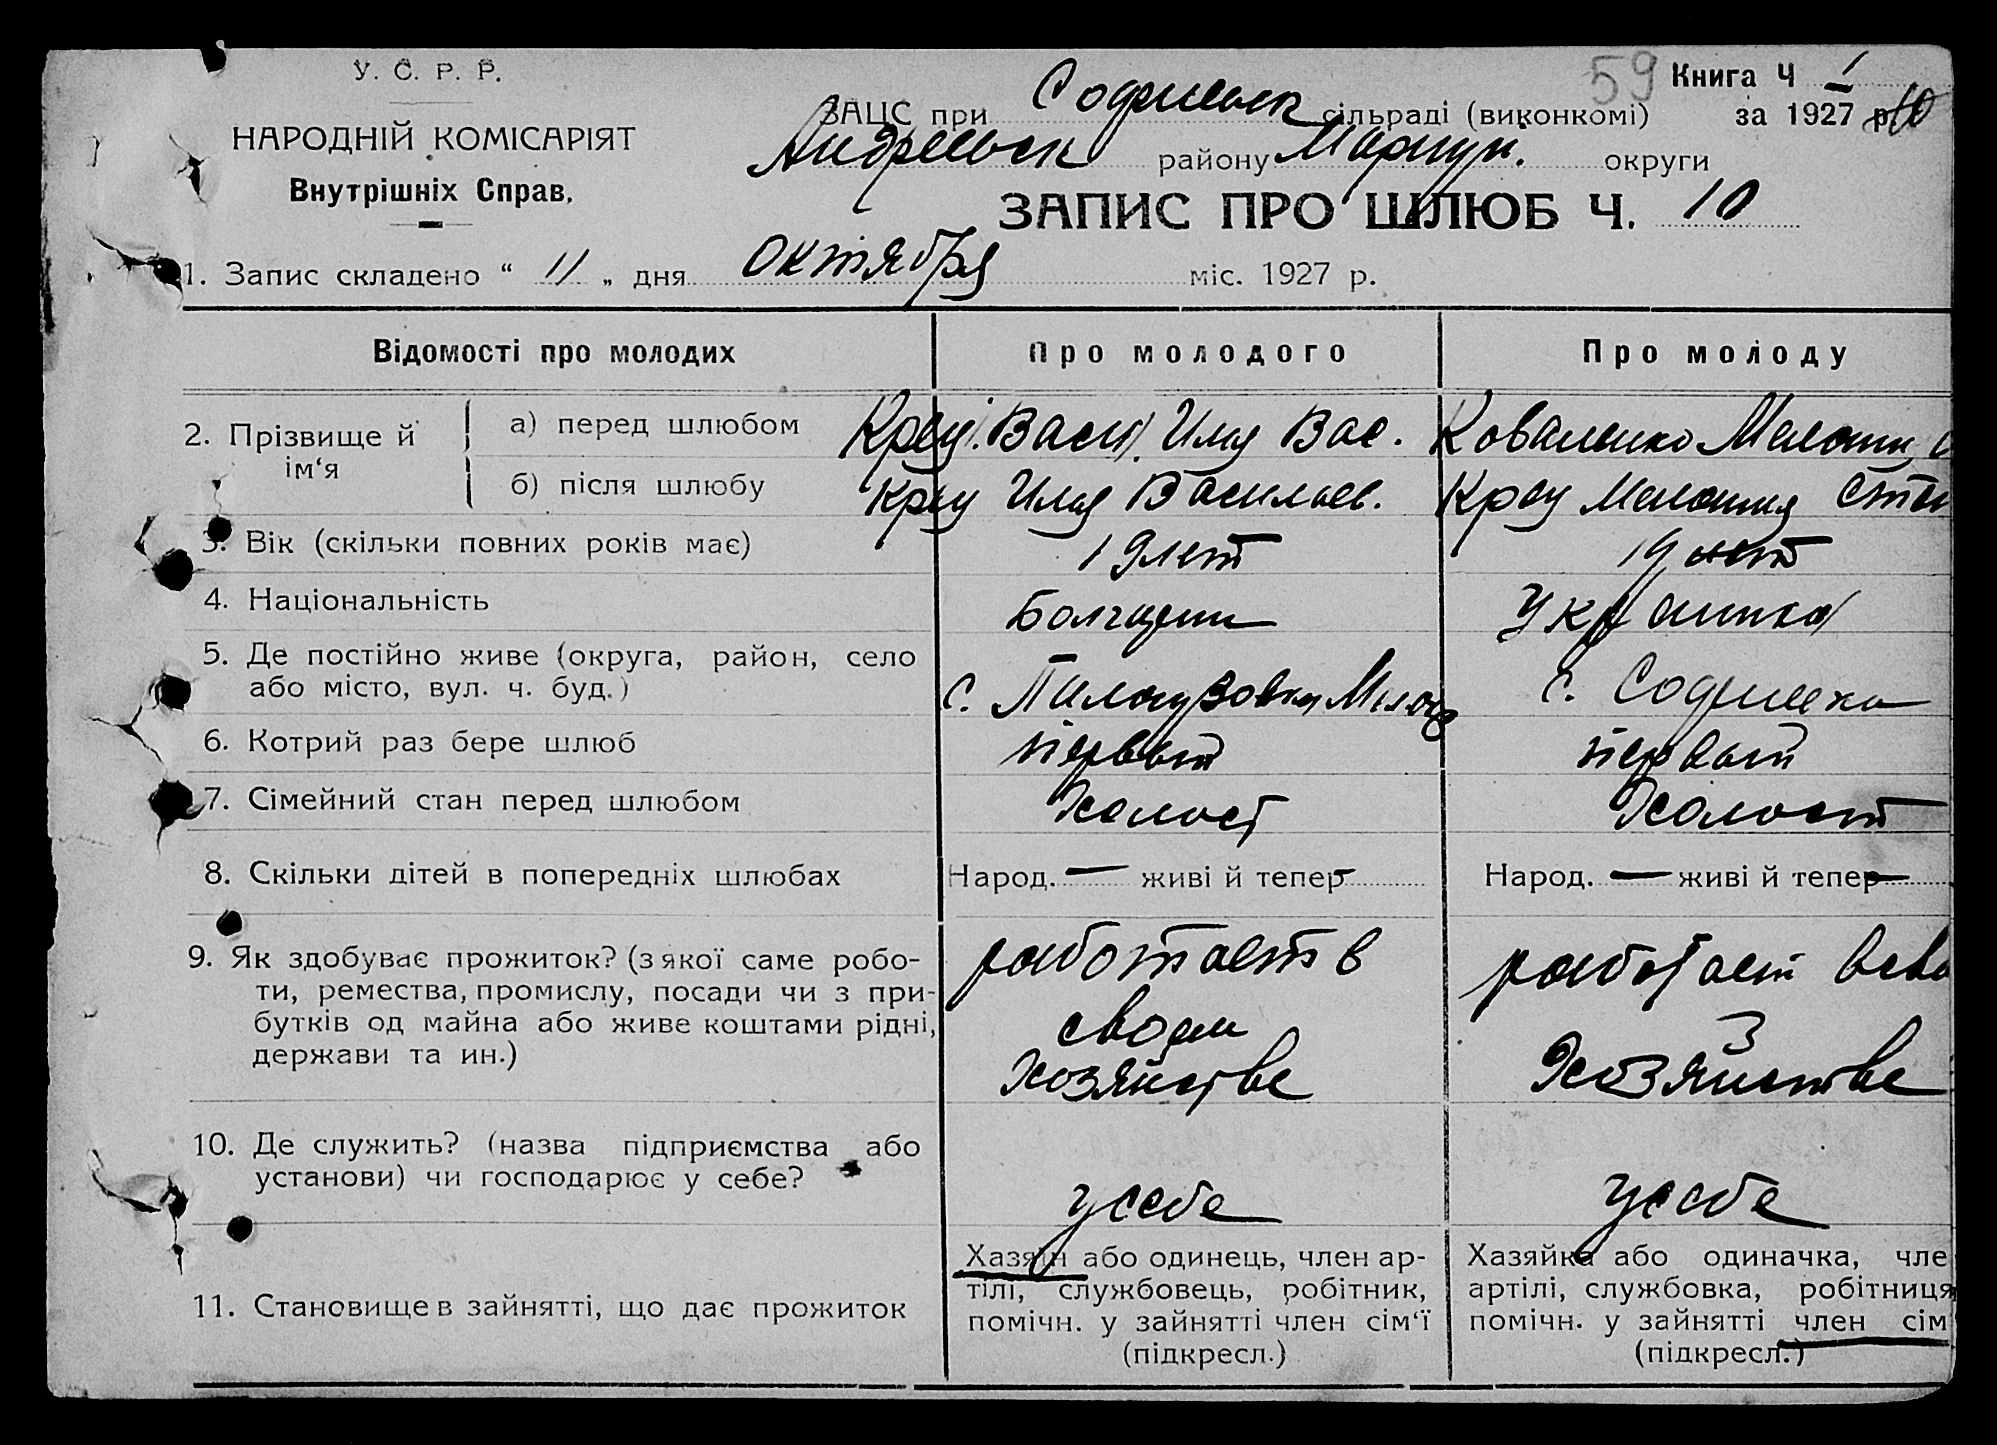 У. С. Р. Р.
НАРОДНІЙ КОМІСАРІЯТ
Внутрішніх Справ.
59 Книга Ч 1
ЗАЦС при сільраді (виконкомі) за 1927 р. 10
району округи
ЗАПИС ПРО ШЛЮБ Ч. 10
1. Запис складено “ 11 „ дня октября міс. 1927 р.
Відомості про молодих Про молодого Про молоду
2. Прізвище й ім‘я
а) перед шлюбом Вас. Коваленко
б) після шлюбу Илья Васильев.
3. Вік (скільки повних років має) 19 лет 19 лет
4. Національність Болгарин Украинка
5. Де постійно живе (округа, район, село
або місто, вул. ч. буд.) с. с.
6. Котрий раз бере шлюб первый первый
7. Сімейний стан перед шлюбом Холост Холост
8. Скільки дітей в попередніх шлюбах Народ. — живі й тепер — Народ. — живі й тепер —
9. Як здобуває прожиток? (з якої саме робо-
ти, ремества, промислу, посади чи з при-
бутків од майна або живе коштами рідні,
держави та ин.)
работает в
своем
Хозяйстве
работает
Хозяйстве
10. Де служить? (назва підприємства або
установи) чи господарює у себе?
у себе у себе
11. Становище в зайнятті, що дає прожиток
Хазяїн або одинець, член ар-
тілі, службовець, робітник,
помічн. у зайнятті член сім‘ї
(підкресл.)
Хазяйка або одиначка, чле
артілі, службовка, робітниця
помічн. у зайнятті член сім
(підкресл.)